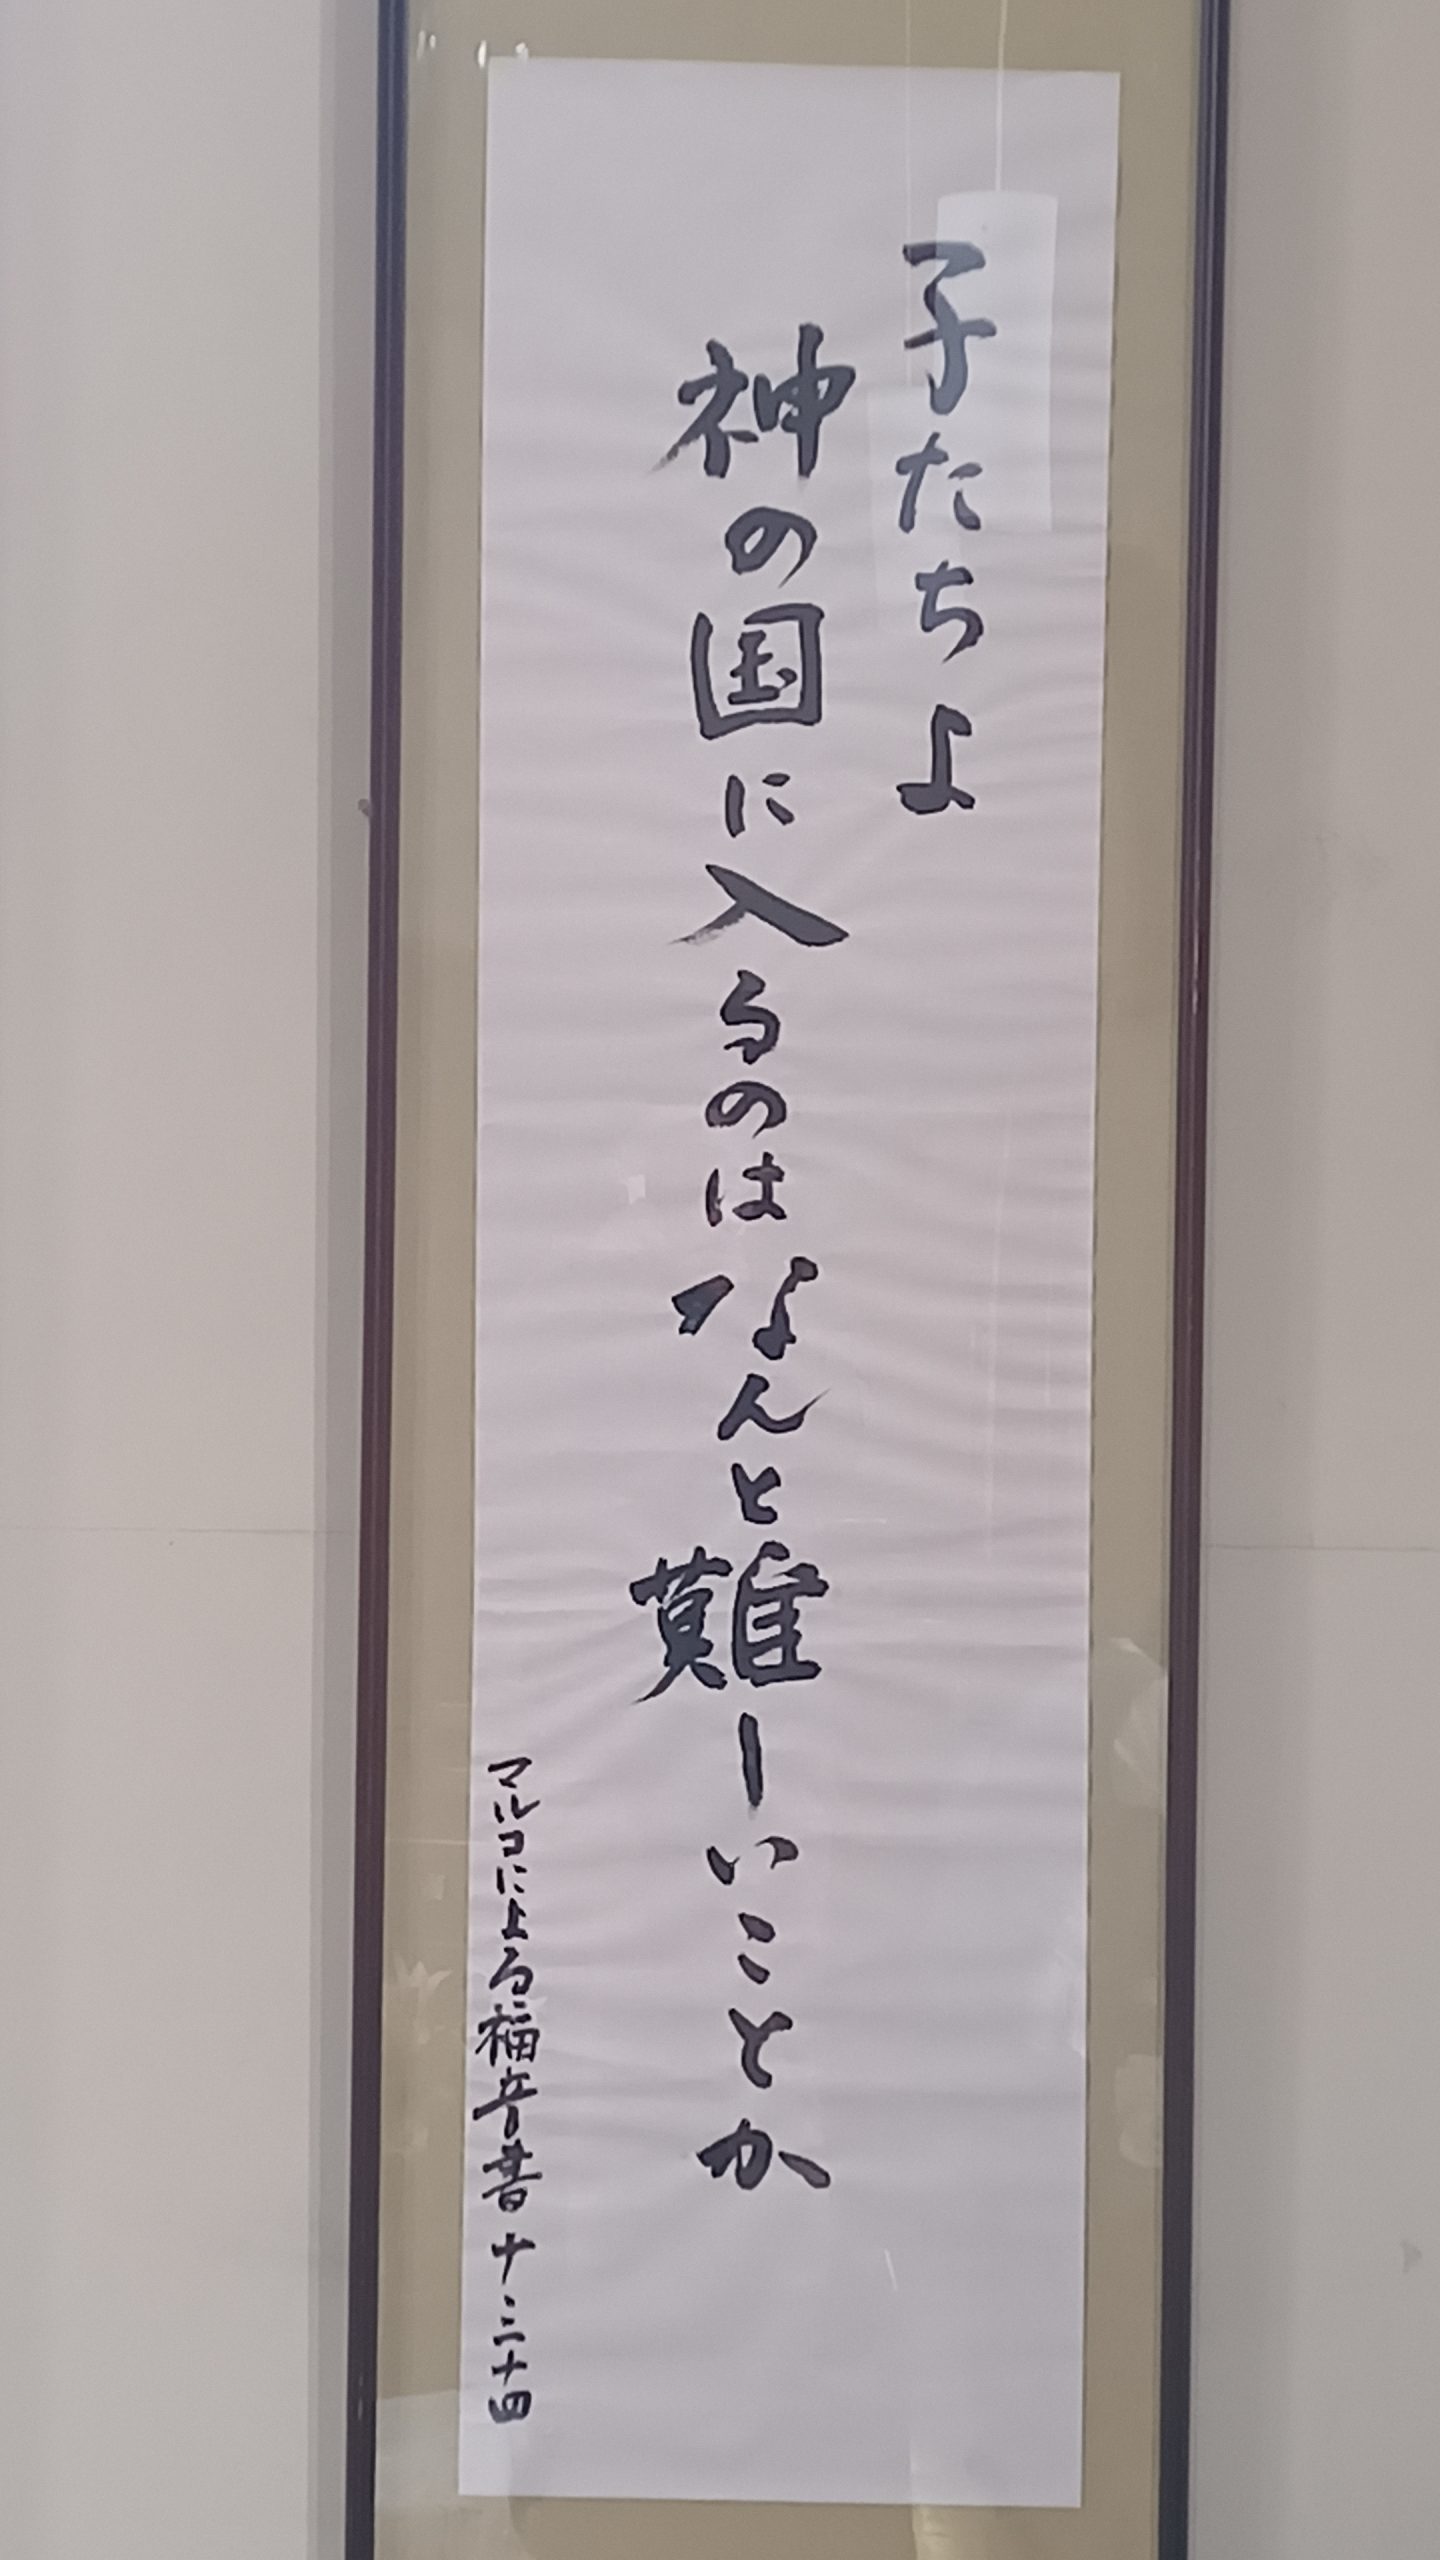 子たちよ
神の国に入るのはなんと難しいことか
マルコによる福音書 十・二十四